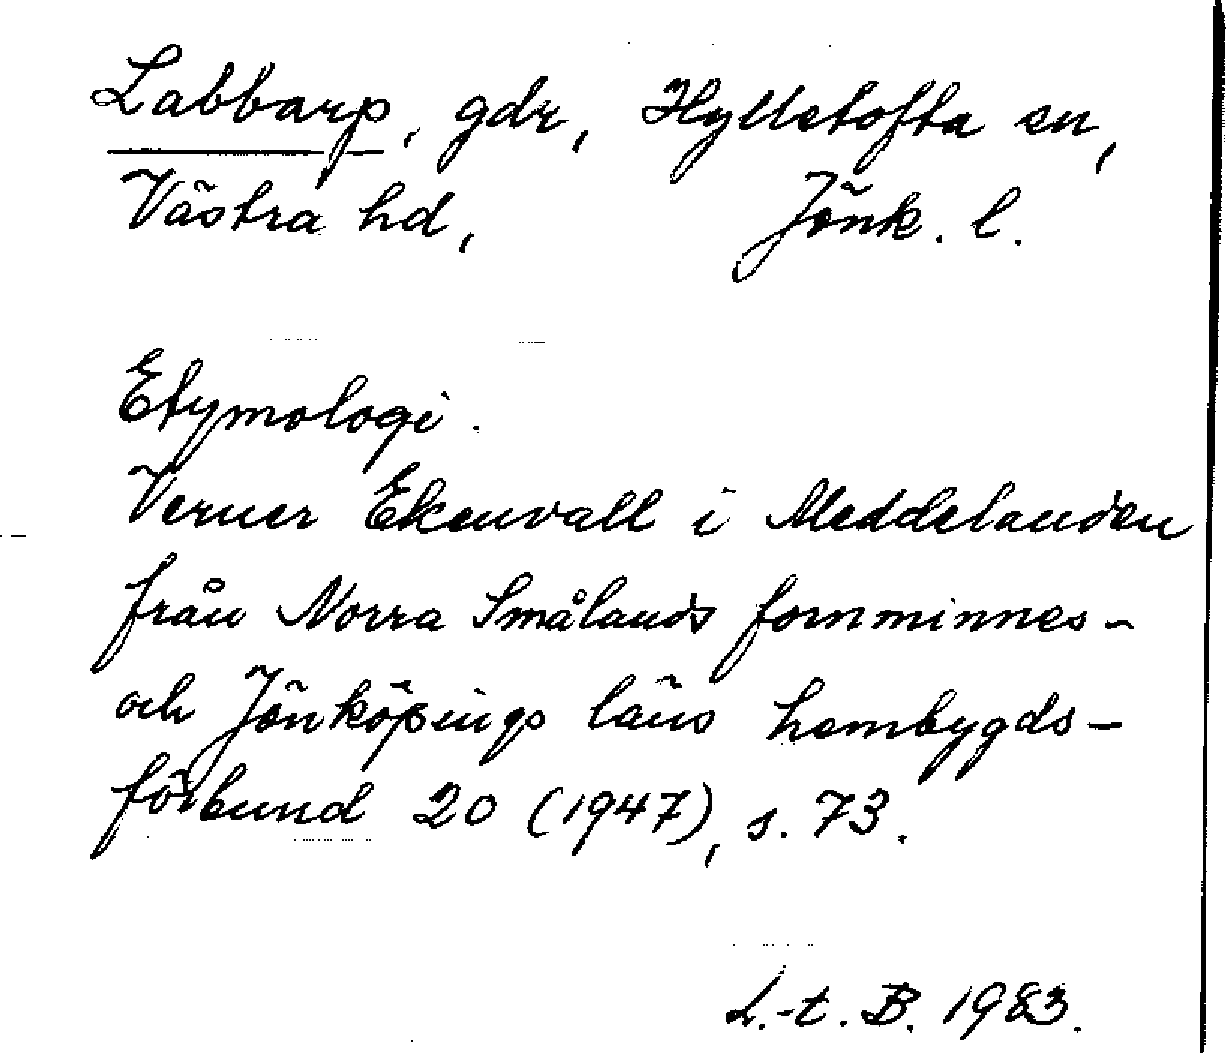 Labbarp, gdr, Hylletofta sn,
Västra hd, Jönk. l.
Etymologi.
Verner Ekenvall i Meddelanden
från Norra Smålands fornminnes-
och Jönköpings läns hembygds-
förbund 20 (1947), s. 73.
L.-t. B. 1983.